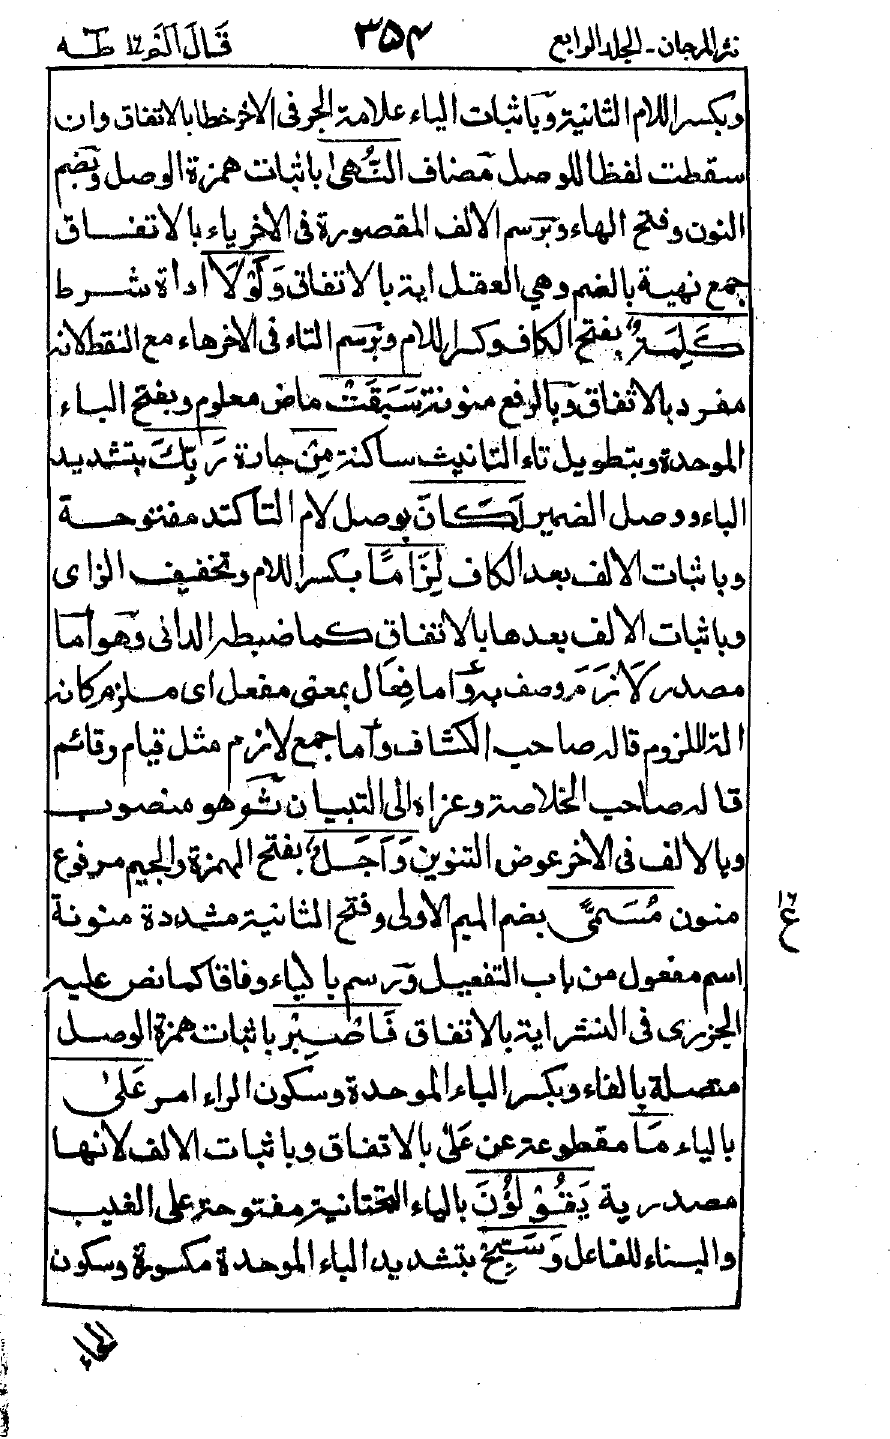 نثر المرجان - الجلد الرابع ٣٥٤ قَالَ اَلَمْ ١٦ طٰهٰ
وبكسر اللام الثانية وباثبات الياء علامة الجر فى الاخر خطا بالاتفاق وان
سقطت لفظا للوصل مضاف النُّهٰى باثبات همزة الوصل وبضم
النون وفتح الهاء وبرسم الالف المقصورة فى الاخر ياء بالاتفاق
جمع نهية بالضم وهي العقل اية بالاتفاق وَلَوْلَا اداة شرط
كَلِمَةٌ بفتح الكاف وكسر اللام وبرسم التاء فى الاخر هاء مع النقط لانه
مفرد بالاتفاق وبالرفع منونة سَبَقَتْ ماض معلوم وبفتح الباء
الموحدة وبتطويل تاء التانيث ساكنة مِنْ جارة رَبِّكَ بتشديد
الباء ووصل الضمير لَكَانَ بوصل لام التاكيد مفتوحة
وباثبات الالف بعد الكاف لِزَامًا بكسر اللام وتخفيف الزاى
وباثبات الالف بعدها بالاتفاق كما ضبطه الدانى وهو اما
مصدر لَازَمَ وصف به واما فِعَال بمعنى مفعل اى ملزم كانه
الة اللزوم قاله صاحب الكشاف واما جمع لازم مثل قيام وقائم
قاله صاحب الخلاصة وعزاه الى التبيان ثم هو منصوب
وبالالف فى الاخر عوض التنوين وَاَجَلٌ بفتح الهمزة والجيم مرفوع
منون مُسَمًّى بضم الميم الاولى وفتح الثانية مشددة منونة
اسم مفعول من باب التفعيل ورسم بالياء وفاقا كما نص عليه
الجزرى فى النشر اية بالاتفاق فَاصْبِرْ باثبات همزة الوصل
متصلة بالفاء وبكسر الباء الموحدة وسكون الراء امر عَلٰى
بالياء مَا مقطوعة عن عَلٰى بالاتفاق وباثبات الالف لانها
مصدرية يَقُوْلُوْنَ بالياء التحتانية مفتوحة على الغيب
والبناء للفاعل وَسَبِّحْ بتشديد الباء الموحدة مكسورة وسكون
١٦
ع
الحاء